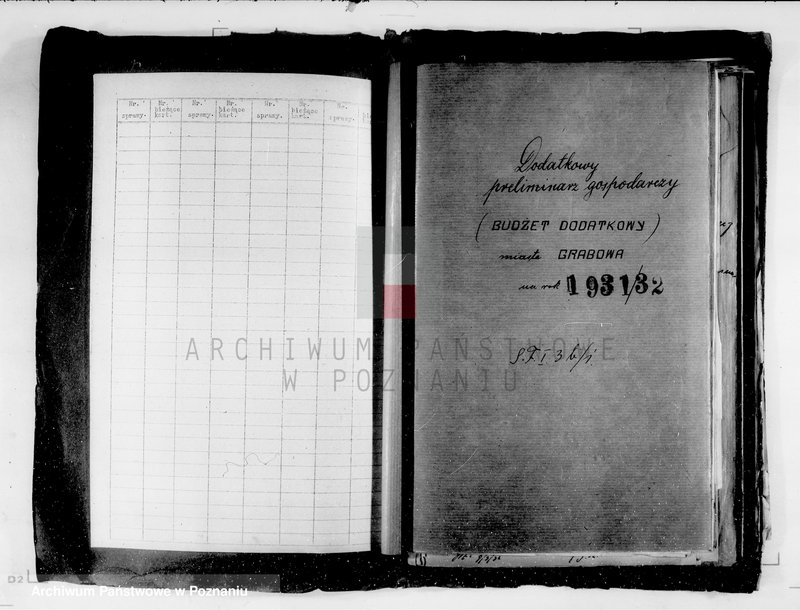 Nr. sprawy.
Nr. bieżące kart.
Nr. sprawy.
Nr. bieżące kart.
Nr. sprawy.
Nr. bieżące kart.
Nr. sprawy.
Dodatkowy
preliminarz gospodarczy
(BUDŻET DODATKOWY)
miasta GRABOWA
na rok 1931/32
ARCHIWUM PAŃSTWOWE
W POZNANIU
D2
Archiwum Państwowe w Poznaniu